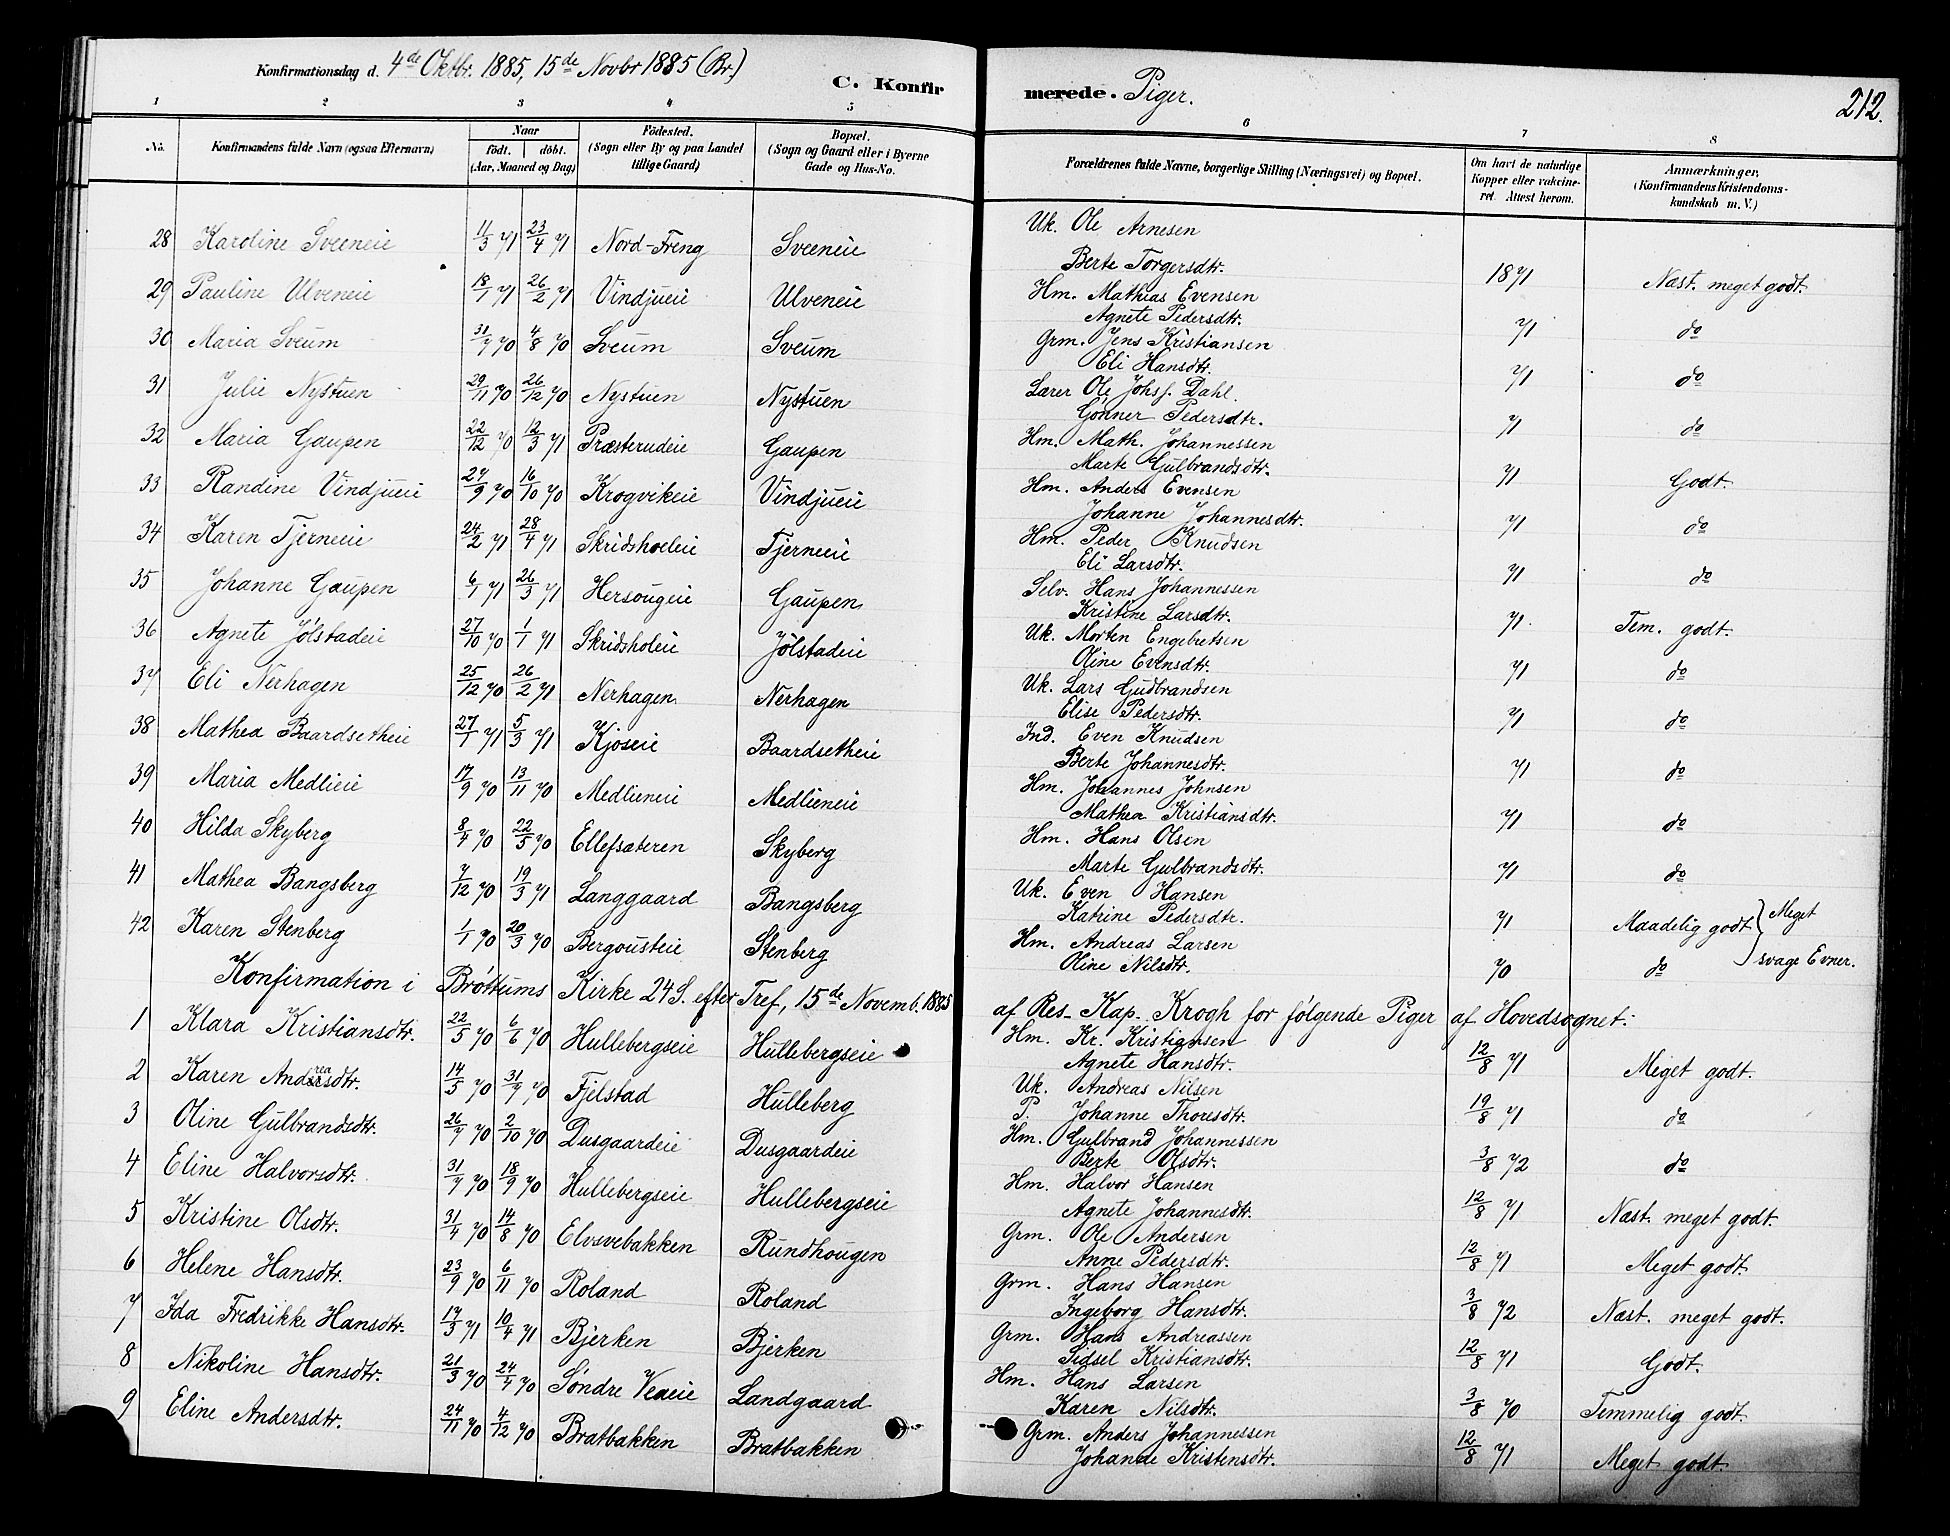 Konfirmationsdag d. 4de Oktbr. 1885, 15de Novbr 1885 (Br.)
C. Konfirmerede. Piger.
212.
1 2 3 4 5 6 7 8
No. Konfirmandens fulde Navn (ogsaa Efternavn) Naar födt. döbt. (Aar, Maaned og Dag) Födested. (Sogn eller By og paa Landet tillige Gaard) Bopæl. (Sogn og Gaard eller i Byerne Gade og Hus-No. Forældrenes fulde Navne, borgerlige Stilling (Næringsvei) og Bopæl. Om havt de naturlige Kopper eller vakcineret. Attest herom. Anmærkninger, (Konfirmandens Kristendomskundskab m. V.)
28 Karoline Sveeneie 11/3 71 23/4 71 Nord-Freng Sveeneie Uk. Ole Arnesen
Berte Torgersdtr. 1871 Næst. meget godt.
29 Pauline Ulveneie 18/1 71 26/2 71 Vindjueie Ulveneie Hm. Mathias Evensen
Agnete Pedersdtr. 71 do
30 Maria Sveum 31/7 70 4/8 70 Sveum Sveum Grm. Jens Kristiansen
Eli Hansdtr. 71 do
31 Julie Nystuen 29/11 70 26/12 70 Nystuen Nystuen Lærer Ole Johsf. Dahl.
Gønner Pedersdtr. 71 do
32 Maria Gaupen 22/12 70 12/3 71 Præsterudeie Gaupen Hm. Math. Johannessen
Marte Gulbrandsdtr. 71 Godt.
33 Randine Vindjueie 27/9 70 16/10 70 Krogvikeie Vindjueie Hm. Anders Evensen
Johanne Johannesdtr. 71 do
34 Karen Tjerneie 24/2 71 28/4 71 Skridsholeie Tjerneie Hm. Peder Knudsen
Eli Larsdtr. 71 do
35 Johanne Gaupen 6/1 71 26/3 71 Hersougeie Gaupen Selv. Hans Johannessen
Kristine Larsdtr. 71. Tem. godt.
36 Agnete Jølstadeie 27/10 70 1/1 71 Skridsholeie Jølstadeie Uk. Morten Engebretsen
Oline Evensdtr. 71 do
37 Eli Nerhagen 25/12 70 26/2 71 Nerhagen Nerhagen Uk. Lars Gudbrandsen
Elise Pedersdtr. 71 do
38 Mathea Baardsetheie 27/1 71 5/3 71 Kjoseie Baardsetheie Ind. Even Knudsen
Berte Johannesdtr. 71 do
39 Maria Medlieie 17/9 70 13/11 70 Medlieneie Medlieneie Hm. Johannes Johnsen
Mathea Kristiansdtr. 71 do
40 Hilda Skyberg 8/4 70 22/5 70 Ellefsæteren Skyberg Hm. Hans Olsen
Marte Gulbrandsdtr. 71 do
41 Mathea Bangsberg 7/12 70 19/3 71 Langgaard Bangsberg Uk. Even Hansen
Katrine Pedersdtr. 71 Maadelig godt } Meget
42 Karen Stenberg 1/1 70 20/3 70 Bergousteie Stenberg Hm. Andreas Larsen
Oline Nilsdtr. 70 do } svage Evner.
Konfirmation i Brøttums Kirke 24 S. efter Tref, 15de Novemb. 1885 af Res. Kap. Krogh for følgende Piger af Hovedsognet:
1 Klara Kristiansdtr. 22/5 70 6/6 70 Hullebergseie Hullebergseie Hm. Kr. Kristiansen
Agnete Hansdtr. 12/8 71 Meget godt.
2 Karen Andreasdtr. 14/5 70 31/7 70 Fjelstad Hulleberg Uk. Andreas Nilsen
P. Johanne Thoresdtr. 19/8 71 do
3 Oline Gulbrandsdtr. 26/7 70 2/10 70 Dusgaardeie Dusgaardeie Hm. Gulbrand Johannessen
Berte Olsdtr. 3/8 72 do
4 Eline Halvorsdtr. 31/7 70 18/9 70 Hullebergseie Hullebergseie Hm. Halvor Hansen
Agnete Johannesdtr. 12/8 71 Næst. meget godt.
5 Kristine Olsdtr. 31/4 70 14/8 70 Elvsvebakken Rundhougen Grm. Ole Andersen
Anne Pedersdtr. 12/8 71 Meget godt.
6 Helene Hansdtr. 23/9 70 6/11 70 Roland Roland Grm. Hans Hansen
Ingeborg Hansdtr. 3/8 72 Næst. meget godt.
7 Ida Fredrikke Hansdtr. 17/3 71 10/4 71 Bjerken Bjerken Grm. Hans Andreassen
Sidsel Kristiansdtr. 12/8 71 Godt.
8 Nikoline Hansdtr. 21/3 70 24/4 70 Søndre Veaeie Landgaard Hm. Hans Larsen
Karen Nilsdtr. 3/8 70 Temmelig godt.
9 Eline Andersdtr. 24/11 70 4/12 70 Bratbakken Bratbakken Grm. Anders Johannessen
Johanne Kristensdtr. 12/8 71 Meget godt.